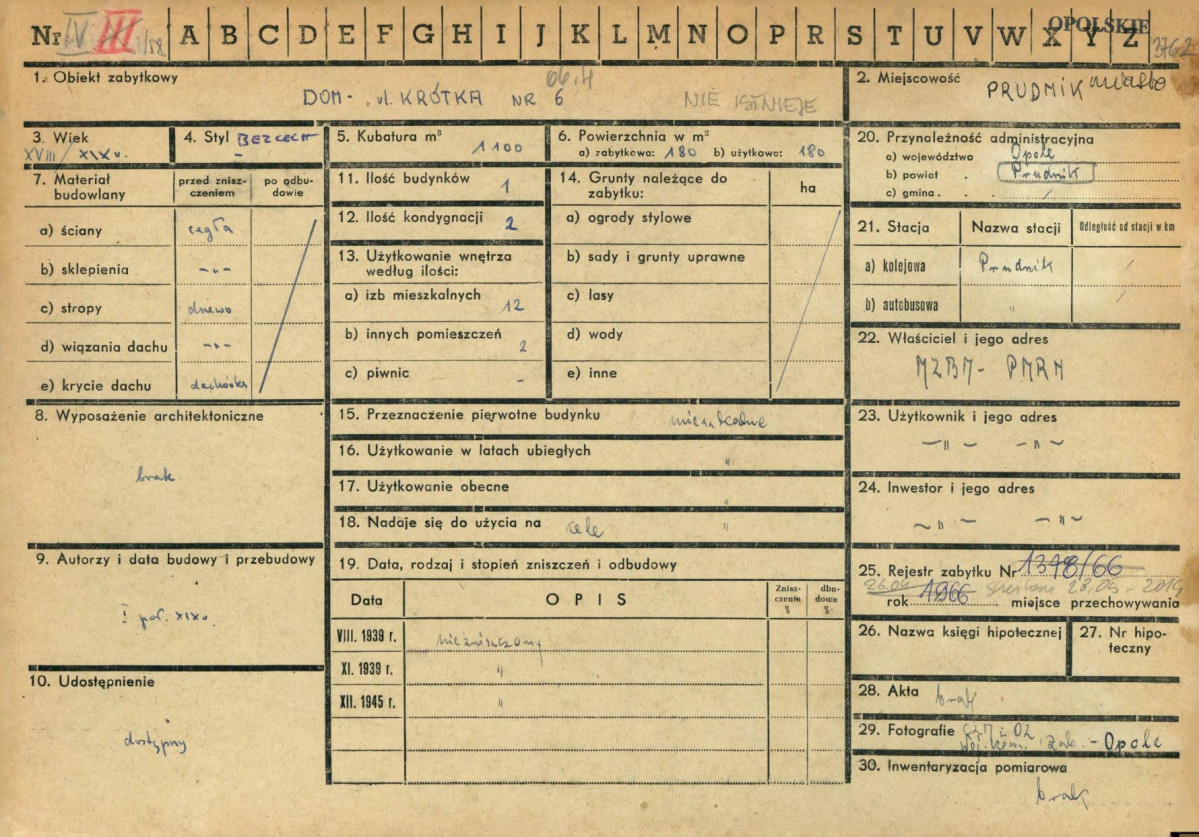 Nr IV III A B C D E F G H I J K L M N O P R S T U V W X Y Z
OPOLSKIE
3762
1. Obiekt zabytkowy
DOM - ul. KRÓTKA NR 6
66.4
NIE ISTNIEJE
2. Miejscowość
PRUDNIK miasto
3. Wiek
XVIII/XIX w.
4. Styl BEZ CECH
-
5. Kubatura m³
1100
6. Powierzchnia w m²
a) zabytkowa: 180 b) użytkowa: 180
7. Materiał budowlany
przed zniszczeniem
po odbudowie
a) ściany cegła
b) sklepienia -"-
c) stropy drewno
d) wiązania dachu -"-
e) krycie dachu dachówka
8. Wyposażenie architektoniczne
brak
9. Autorzy i data budowy i przebudowy
I poł. XIX w.
10. Udostępnienie
dostępny
11. Ilość budynków 1
12. Ilość kondygnacji 2
13. Użytkowanie wnętrza
według ilości:
a) izb mieszkalnych 12
b) innych pomieszczeń 2
c) piwnic -
14. Grunty należące do
zabytku:
ha
a) ogrody stylowe
b) sady i grunty uprawne
c) lasy
d) wody
e) inne
15. Przeznaczenie pierwotne budynku mieszkalne
16. Użytkowanie w latach ubiegłych "
17. Użytkowanie obecne "
18. Nadaje się do użycia na cele "
19. Data, rodzaj i stopień zniszczeń i odbudowy
Data
OPIS
Zniszczenia %
dbudowa %
VIII. 1939 r. niezniszczony
XI. 1939 r. "
XII. 1945 r. "
20. Przynależność administracyjna
a) województwo Opole
b) powiat Prudnik
c) gmina
21. Stacja
Nazwa stacji
Odległość od stacji w km
a) kolejowa Prudnik /
b) autobusowa " /
22. Właściciel i jego adres
MZBM - PMRN
23. Użytkownik i jego adres
-"- -"-
24. Inwestor i jego adres
-"- -"-
25. Rejestr zabytku Nr 1348/66
rok 1966 miejsce przechowywania
26. Nazwa księgi hipotecznej
27. Nr hipoteczny
28. Akta brak
29. Fotografie
- Opole
30. Inwentaryzacja pomiarowa
brak